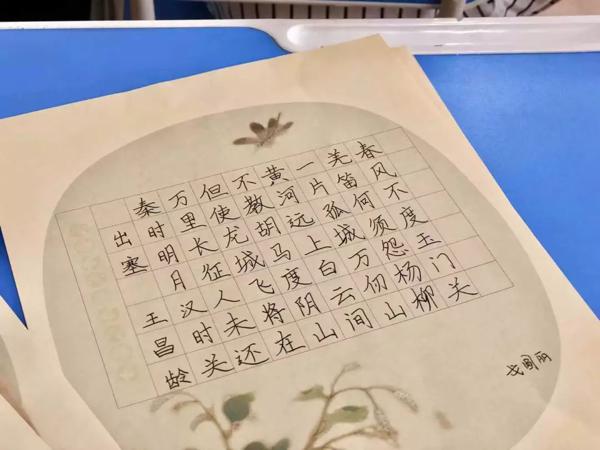 出塞 王昌龄
秦时明月汉时关
万里长征人未还
但使龙城飞将在
不教胡马度阴山
黄河远上白云间
一片孤城万仞山
羌笛何须怨杨柳
春风不度玉门关